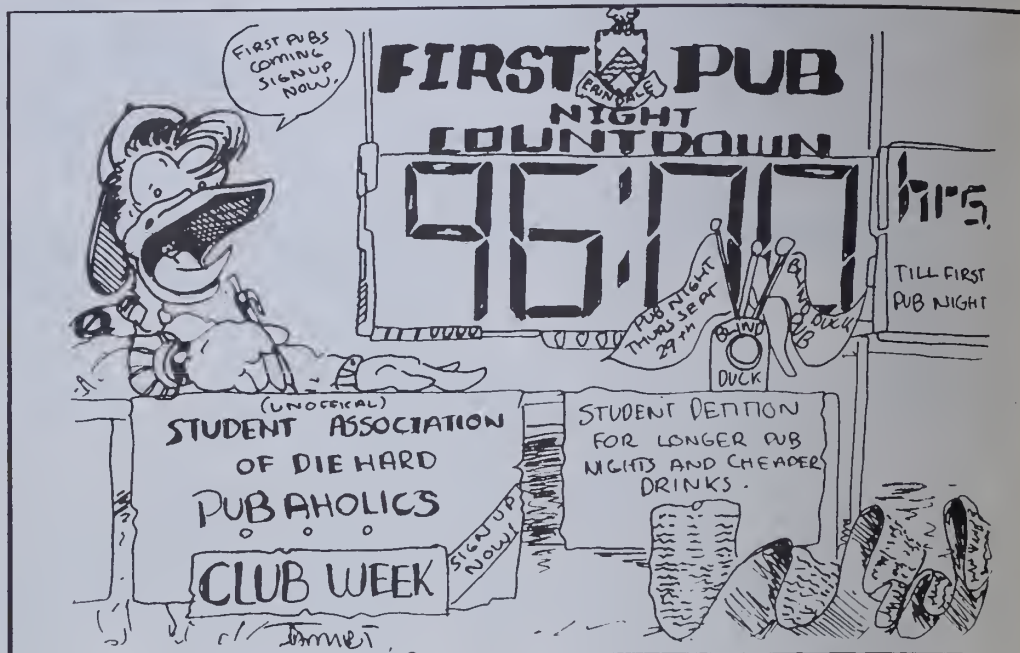 FIRST PUBS
COMING
SIGN UP
NOW.
FIRST PUB
ERINDALE
NIGHT
COUNTDOWN
96:00
hrs.
TILL FIRST
PUB NIGHT
PUB NIGHT
THURS SEPT
29TH
BLIND
DUCK
PUB
BLIND
DUCK
(UNOFFICAL)
STUDENT ASSOCIATION
OF DIE HARD
PUBAHOLICS
CLUB WEEK
SIGN UP
NOW!
STUDENT PETITION
FOR LONGER PUB
NIGHTS AND CHEAPER
DRINKS.